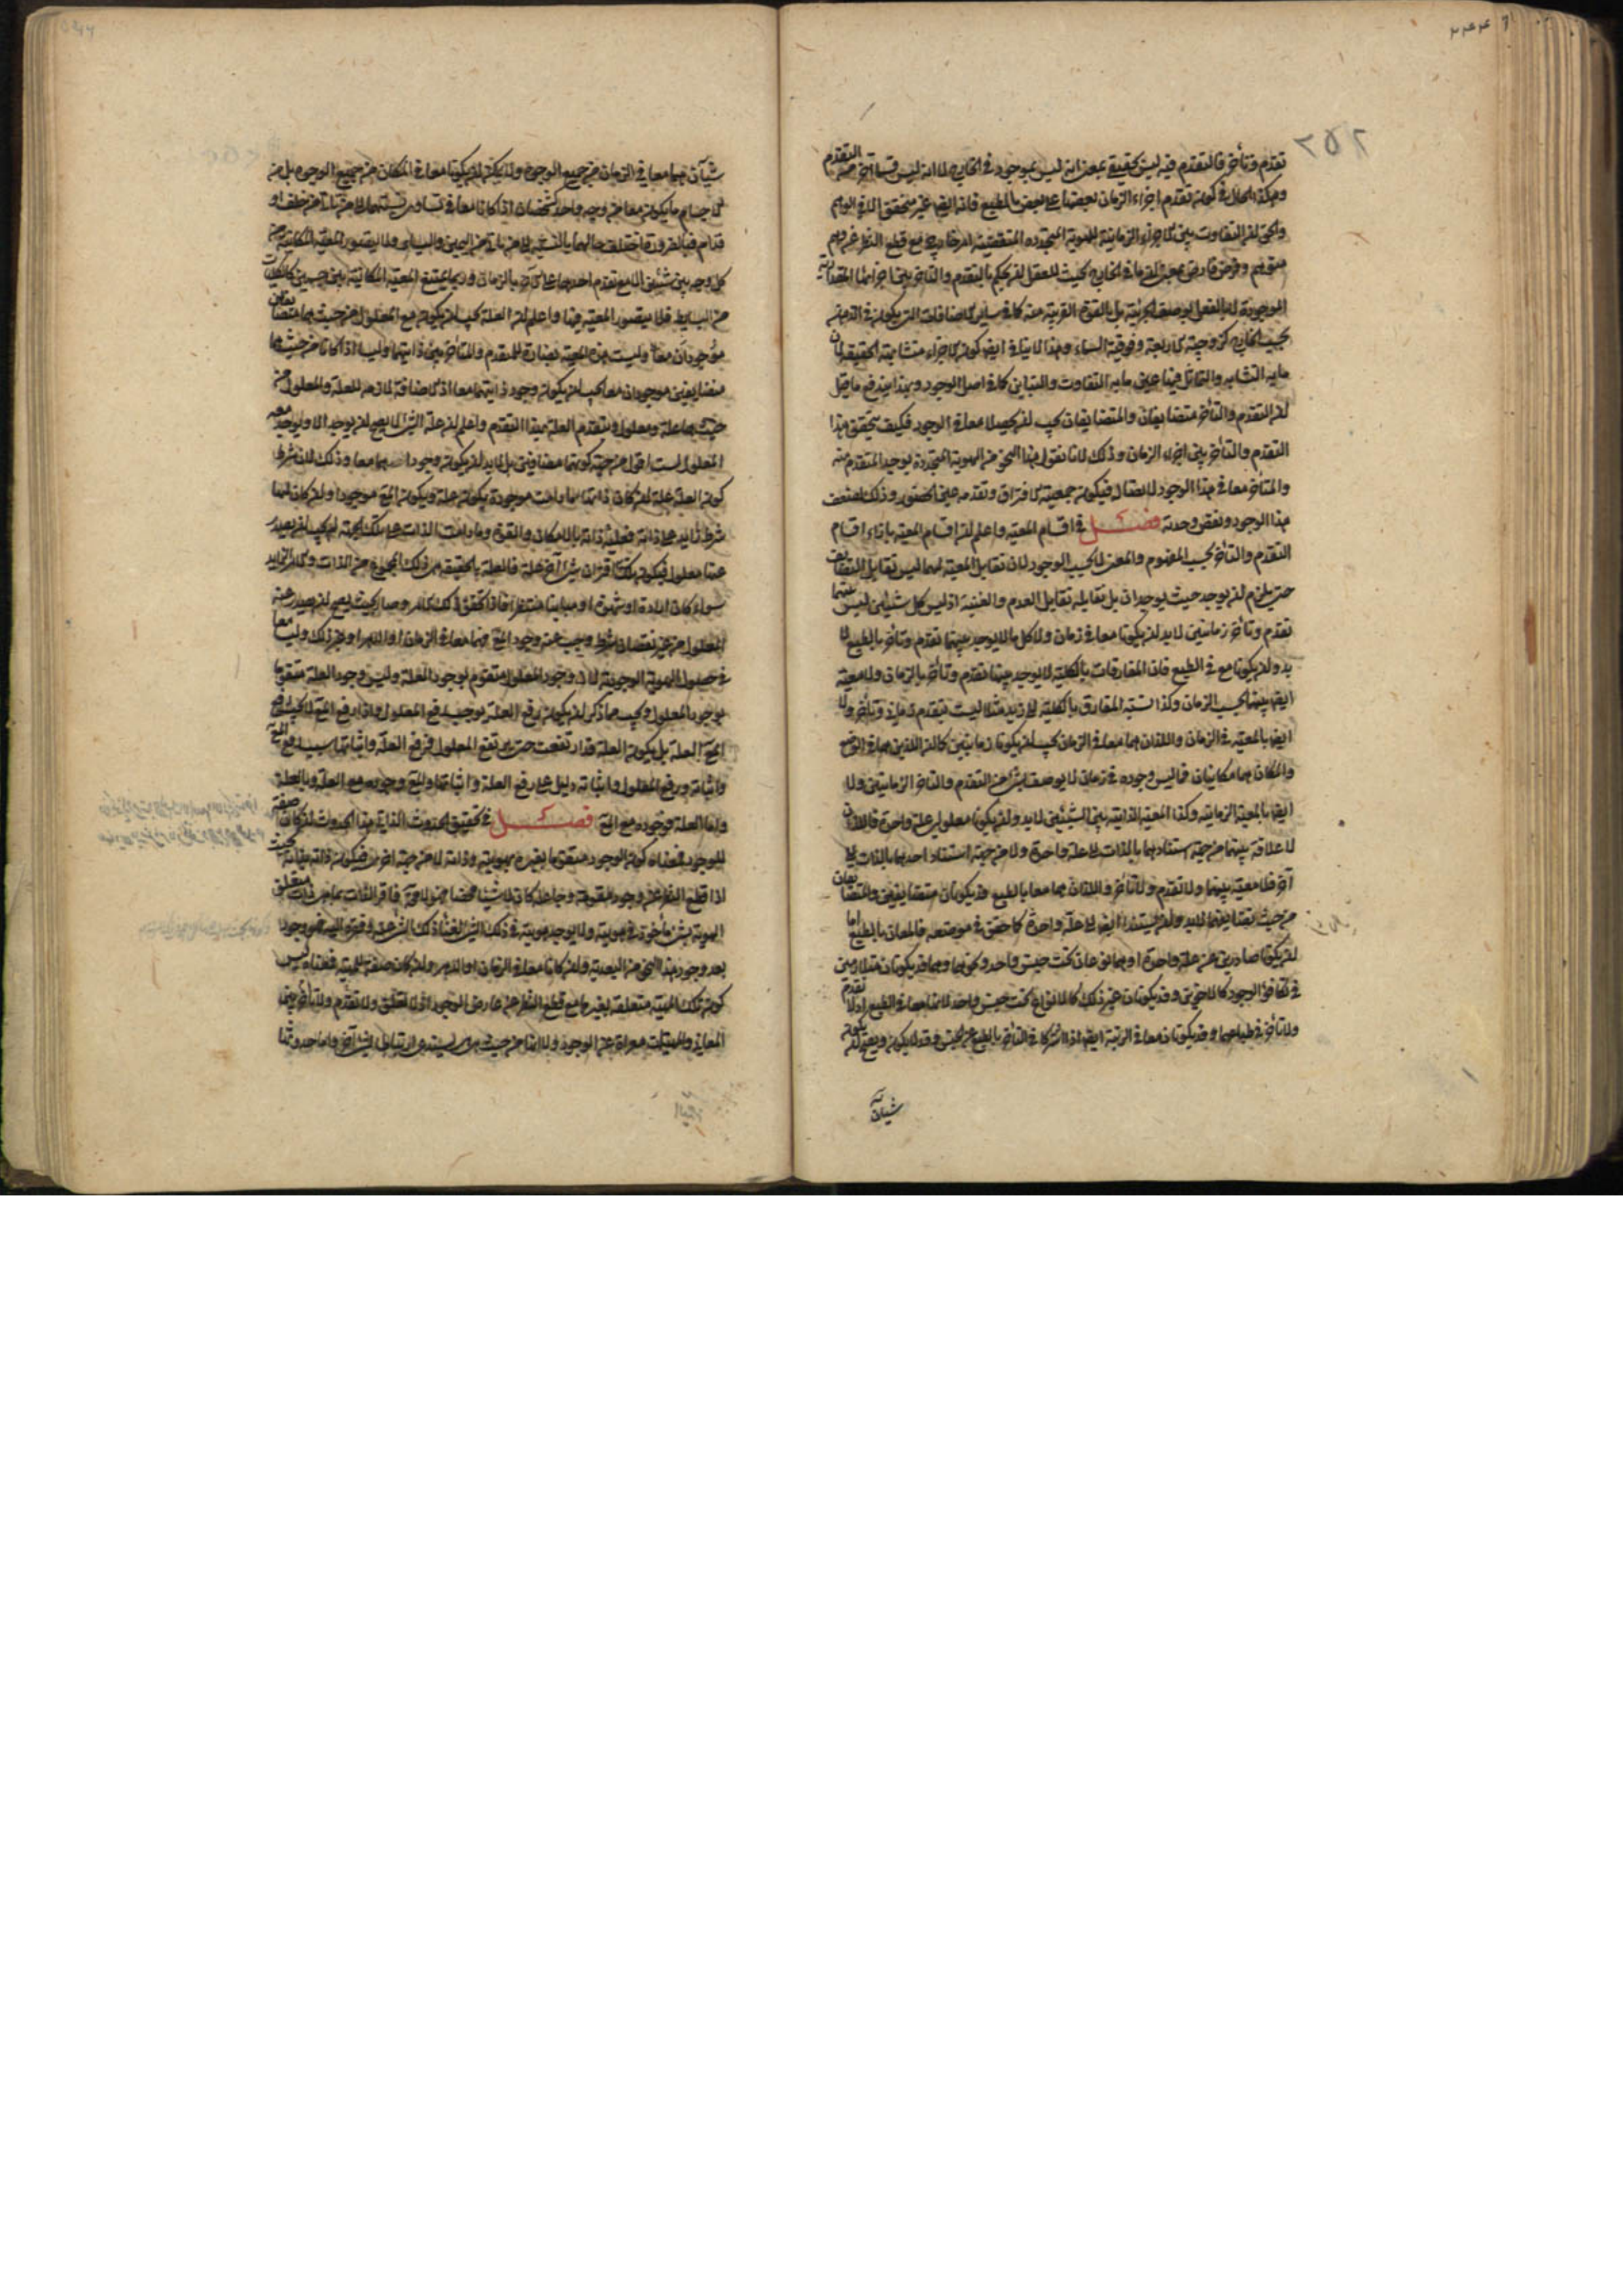 ٢٥٢
تقدم وتأخر فالتقدم فيه ليس كحقيقة بمعنى انه ليس بموجود في الخارج لا انه ليس قسما آخر من التقدم
وهكذا الحال في كون تقدم اجزاء الزمان بعضها على بعض بالطبع فانه ايضا غير متحقق الا في الوهم
والحق ان التفاوت بين الاجزاء الزمانية للهوية المتجددة المتقضية امر خارجي مع قطع النظر عن وهم
متوهم وفرض فارض بمعنى ان ما في الخارج بحيث للعقل ان يحكم بالتقدم والتأخر بين اجزائها المقدارية
الموجودة لا بالفعل بوصف الجزئية بل بالقوة القريبة منه كما في سائر الاضافات التي يكون في الذهن
بحسب الخارج كزوجية الاربعة وفوقية السماء وهذا لا ينافي ايضا كون الاجزاء متشابهة الحقيقة لان
ما به التشابه والتماثل فيها عين ما به التفاوت والتباين كما في اصل الوجود وبهذا يندفع ما قيل
ان التقدم والتأخر متضايفان والمتضايفان يجب ان يحصلا معا في الوجود فكيف يتحقق هذا
التقدم والتأخر بين اجزاء الزمان وذلك لانا نقول هذا النحو من الهوية المتجددة يوجد المتقدم منه
والمتأخر معا في هذا الوجود الاتصالي فيكون جمعيته الافتراق وتقدمه عين الحضور وذلك لضعف
هذا الوجود ونقص وحدته فصل في اقسام المعية واعلم ان اقسام المعية بازاء اقسام
التقدم والتأخر بحسب المفهوم والمعنى لا بحسب الوجود لان تقابل المعية لهما ليس تقابل التضايف
حتى يلزم ان يوجد حيث يوجدان بل تقابله تقابل العدم والقنية اذ ليس كل شيئين ليس بينهما
تقدم وتأخر زمانيين لا بد ان يكونا معا في زمان ولا كل ما لا يوجد بينهما تقدم وتأخر بالطبع لا
بد وان يكونا مع في الطبع فان المفارقات بالكلية لا يوجد بينها تقدم وتأخر بالزمان ولا معية
ايضا بينها بحسب الزمان وكذا نسبة المفارق بالكلية الى زيد مثلا ليست بتقدم زماني وتأخر ولا
ايضا بالمعية في الزمان واللذان هما معا في الزمان يجب ان يكونا زمانيين كما ان اللذين هما في الوضع
والمكان هما مكانيان فما ليس وجوده في زمان لا يوصف بشيء من التقدم والتأخر الزمانيين ولا
ايضا بالمعية الزمانية وكذا المعية الذاتية بين الشيئين لا بد وان يكونا معلولي علة واحدة فاللذان
لا علاقة بينهما من جهة استنادهما بالذات الى علة واحدة ولا من جهة استناد احدهما بالذات الى
آخر فلا معية بينهما ولا تقدم ولا تأخر فاللذان هما معا بالطبع قد يكونان متضايفين والمتضايفان
من حيث تضايفهما لا بد وان يستندا ايضا الى علة واحدة كما حقق في موضعه فالمعان بالطبع اما
ان يكونا صادرين عن علة واحدة او هما نوعان تحت جنس واحد ونحوهما وهما قد يكونان متلازمين
في تكافؤ الوجود كالاخوين وقد يكونان غير ذلك كالانواع تحت جنس واحد لانها معا في الطبع اذ لا تقدم
ولا تأخر في طباعهما وقد يكونان معا في الرتبة ايضا اذا اشتركا في التأخر بالطبع عن الجنس وقد لا يكون ويصح ان يكون
شيئان
شيئان هما معا في الزمان من جميع الوجوه ولا يمكن ان يكونا معا في المكان من جميع الوجوه بل من
الاجسام ما يكون معا من وجه واحد كشخصان اذا كانا معا في تساوي نسبتهما الى من يأتي من خلف او
قدام فبالضرورة يختلف حالهما بالنسبة الى من يأتي من اليمين واليسار ولا يتصور المعية المكانية من
كل وجه بين شيئين الا مع تقدم احدهما على الآخر بالزمان وربما يمتنع المعية المكانية بين جسمين كالكليات
من البسائط فلا يتصور المعية فيها واعلم ان العلة يجب ان يكون مع المعلول من حيث هما متضايفان
موجودان معا وليست هذه المعية بضارة للتقدم والتأخر بين ذاتيهما وليسا اذا كانا من حيث هما
متضايفين موجودان معا يجب ان يكون وجود ذاتيهما معا اذ الاضافة لازمة للعلة والمعلول من
حيث هما علة ومعلول ويتقدم العلة بهذا التقدم واعلم ان علة الشيء لا يصح ان يوجد الا ويوجد معه
المعلول لست اقول من جهة كونهما متضايفين بل لا بد ان يكون وجوداهما معا وذلك لان شرط
كون العلة علة ان كان ذاتها فما دامت موجودة يكون علة ويكون المع موجودا وان كان لها
شرط زايد على ذاته فعلية ذاته بالامكان والقوة وما دامت الذات على تلك الجهة لم يجب ان يصدر
عنها معلول فيكون الذات مع اقتران شيء آخر علة فالعلة بالحقيقة هي ذلك المجموع من الذات والامر الزايد
سواء كان ارادة او شهوة او مباينا منتظرا فاذا تحقق ذلك الامر وصار بحيث يصح ان يصدر عنه
المعلول من غير نقصان شرط وجب عنه وجود المع فهما معا في الزمان او الدهر او غير ذلك وليسا معا
في حصول الهوية الوجودية لان وجود المعلول متقوم بوجود العلة وليس وجود العلة متقوما
بوجود المعلول ويجب مما ذكر ان يكون رفع العلة يوجب رفع المعلول واذا رفع المع لا يجب رفع
العلة بل يكون العلة قد ارتفعت حتى يرتفع المعلول فرفع العلة واثباتها سبب رفع المع
واثباته ورفع المعلول واثباته دليل على رفع العلة واثباتها والمع وجوده مع العلة وبالعلة
واما العلة فوجوده مع المع فصل في تحقيق الحدوث الذاتي هذا الحدوث ان كان صفة
للوجود فمعناه كون الوجود متقوما بغيره بهويته وذاته لا من جهة اخرى فيكون ذاته بذاته بحيث
اذا قطع النظر عن وجود مقومه وجاعله كان لا شيئا محضا فهو لا محالة فاقر الذات بما هي ذات متعلق
الهوية بشيء مأخوذ في هويته ولا يوجد هويته في ذلك الشيء لغناء ذلك الشيء عنه وفقره اليه فهو وجود
بعد وجود هذا النحو من البعدية وان كانا معا في الزمان او الدهر وان كان صفة للماهية فمعناه ليس
كون تلك الماهية متعلقة بغيرها مع قطع النظر عن عارض الوجود اذ لا تعلق ولا تقدم ولا تأخر بين
المعاني والماهيات معراة عن الوجود ولا انها من حيث هي هي يستدعي ارتباطا الى شيء آخر واما حدوثها